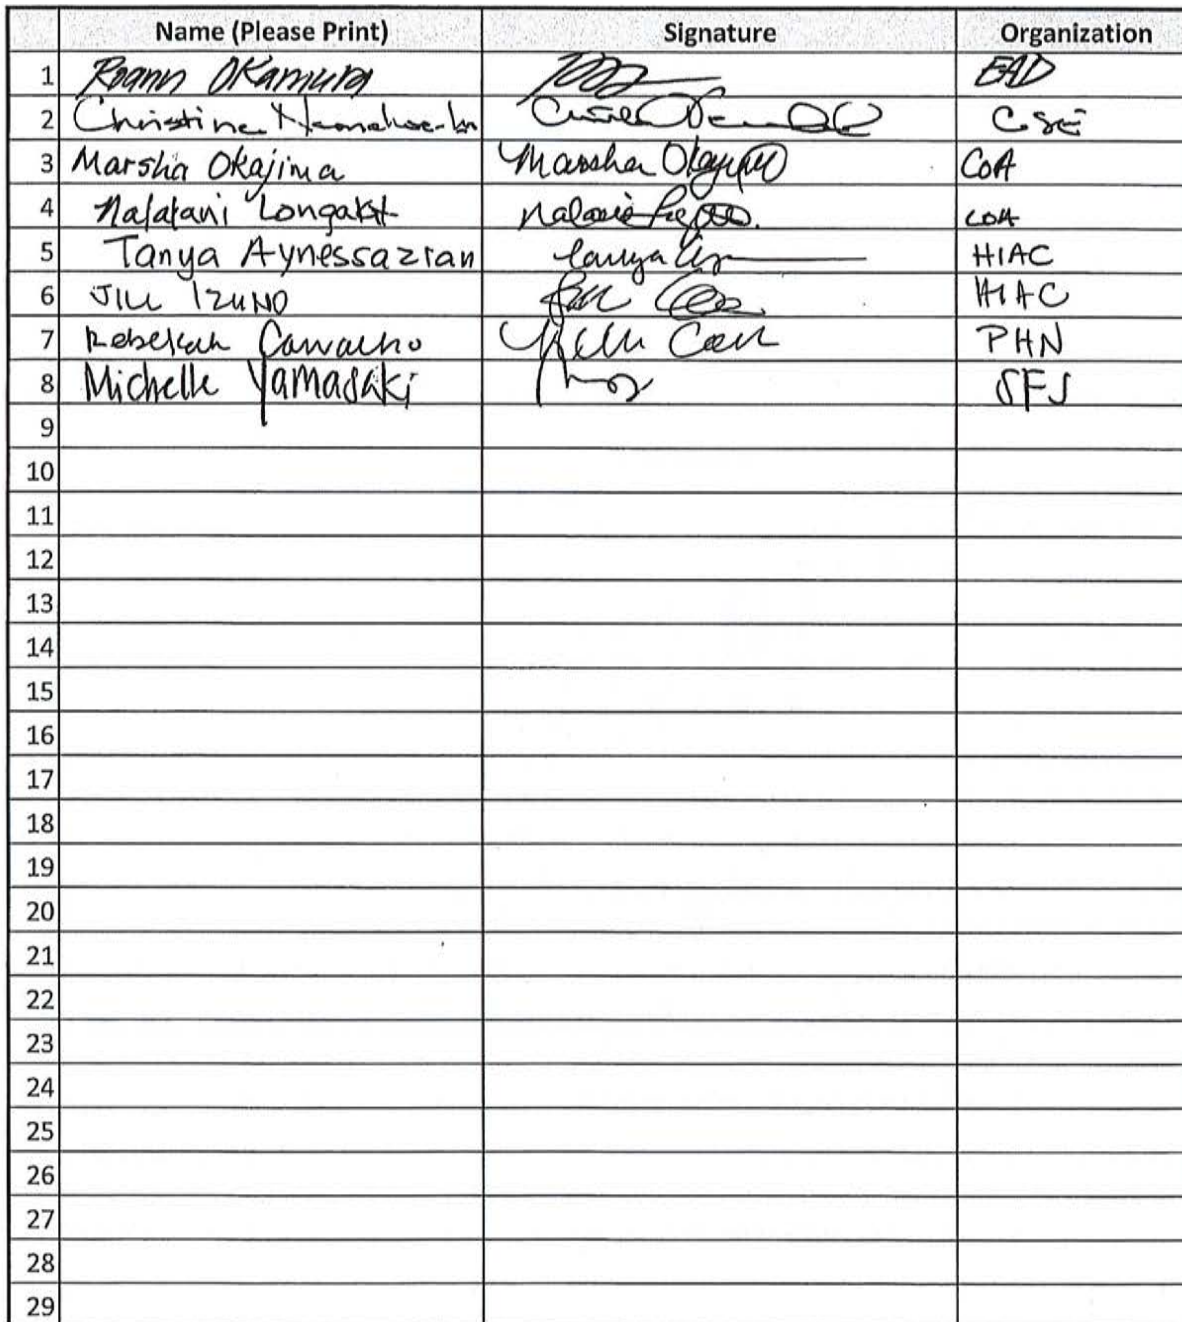 Name (Please Print) Signature Organization
1 Roann Okamura EAD
2 Christine CSE
3 Marsha Okajima Marsha Okajima COA
4 COA
5 Tanya Aynessazian Tanya HIAC
6 JILL IZUNO HIAC
7 Rebekah Carvalho PHN
8 Michelle Yamasaki SFS
9
10
11
12
13
14
15
16
17
18
19
20
21
22
23
24
25
26
27
28
29